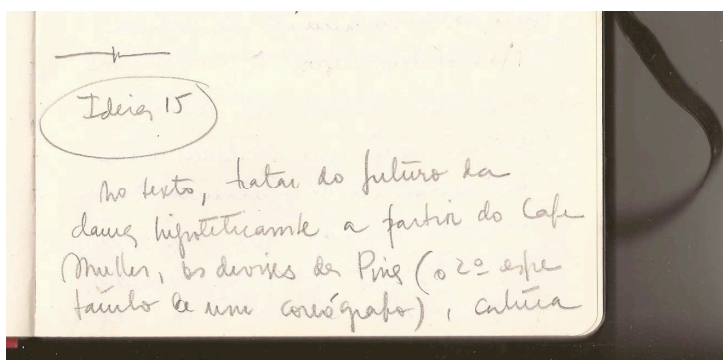 Ideia 15
no texto, tratar do futuro da
dança hipoteticamente a partir do Cafe
Muller, os da Pina (o 2º espe
táculo de um coreógrafo),